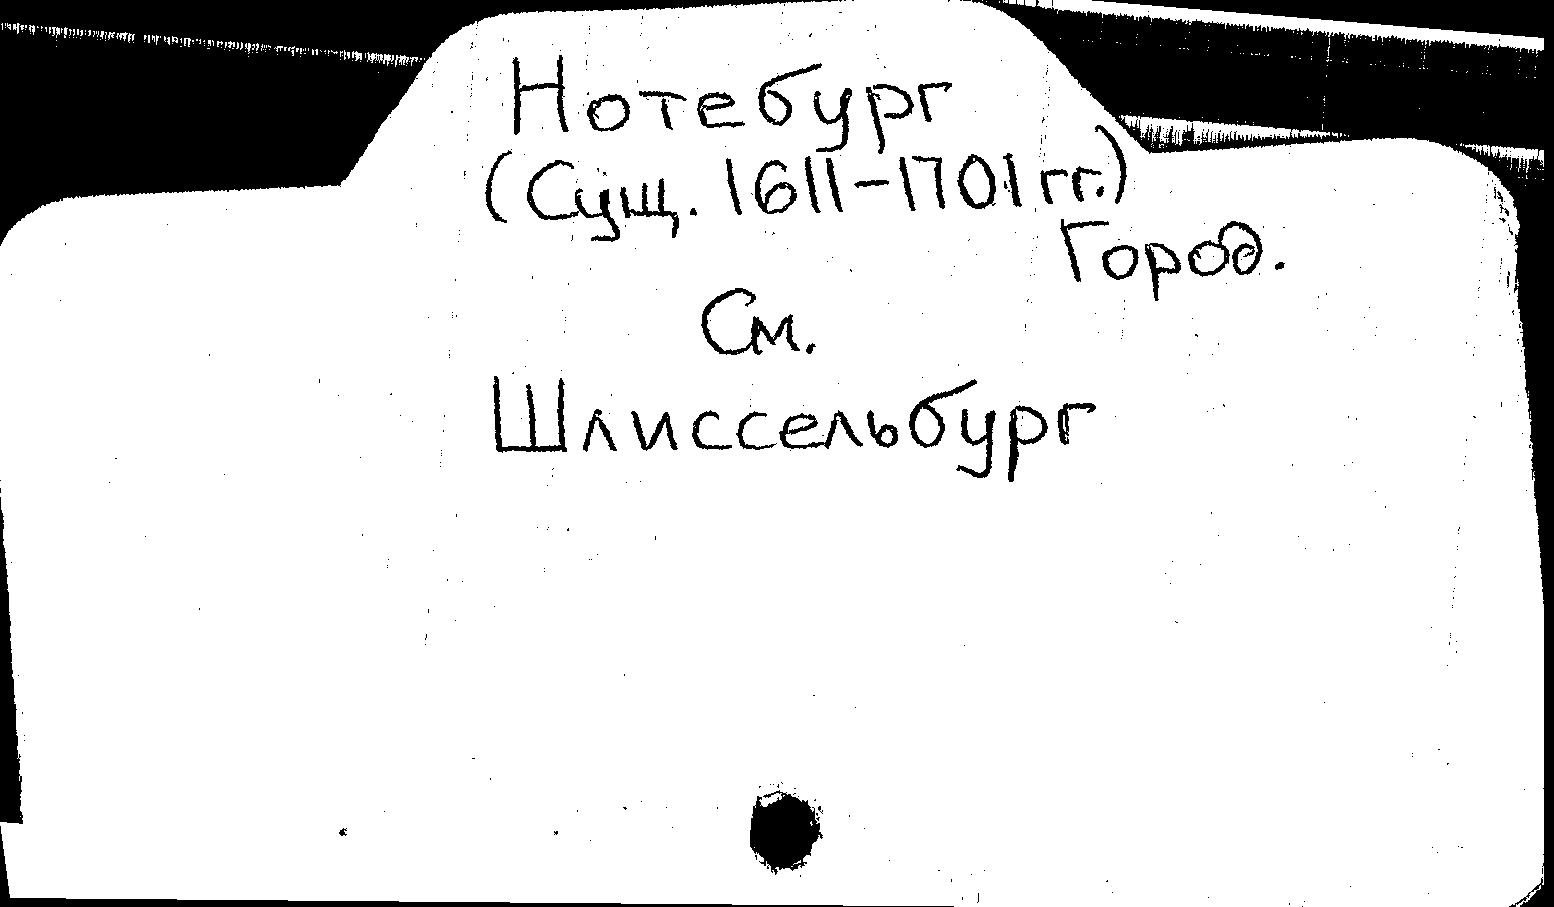 Нотебург
(Сущ. 1611-1701 гг.)
Город.
См.
Шлиссельбург